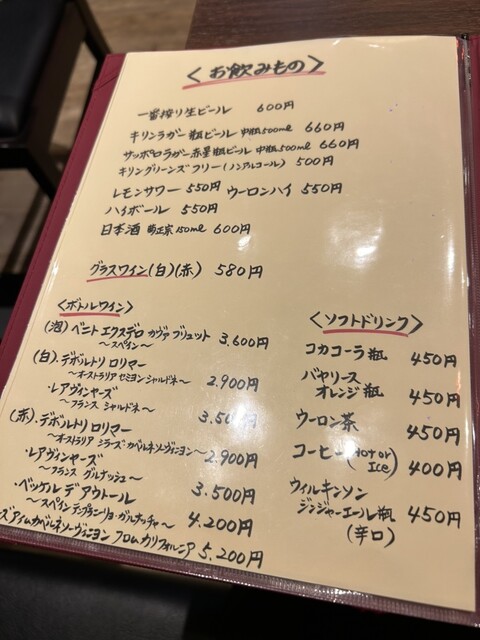 〈お飲みもの〉
一番搾り生ビール 600円
キリンラガー 瓶ビール 中瓶500ml 660円
サッポロラガー赤星 瓶ビール 中瓶500ml 660円
キリングリーンズフリー(ノンアルコール) 500円
レモンサワー 550円 ウーロンハイ 550円
ハイボール 550円
日本酒 菊正宗 150ml 600円
グラスワイン(白)(赤) 580円
〈ボトルワイン〉
(泡)ベニト エスクデロ カヴァ ブリュット 3.600円
〜スペイン〜
(白).デボルトリ ロリマー
〜オーストラリア セミヨン シャルドネ〜 2.900円
・レアヴィンヤーズ
〜フランス シャルドネ〜 3.500円
(赤).デボルトリ ロリマー
〜オーストラリア シラーズ カベルネソーヴィニヨン〜 2.900円
・レアヴィンヤーズ
〜フランス グルナッシュ〜 3.500円
・ベッケル デ アウトール
〜スペイン テンプラニーリョ・ガルナッチャ〜 4.200円
カベルネソーヴィニヨン フロム カリフォルニア 5.200円
〈ソフトドリンク〉
コカコーラ瓶 450円
バヤリース
オレンジ瓶 450円
ウーロン茶 450円
コーヒー(Hot or Ice) 400円
ウィルキンソン
ジンジャーエール瓶 450円
(辛口)